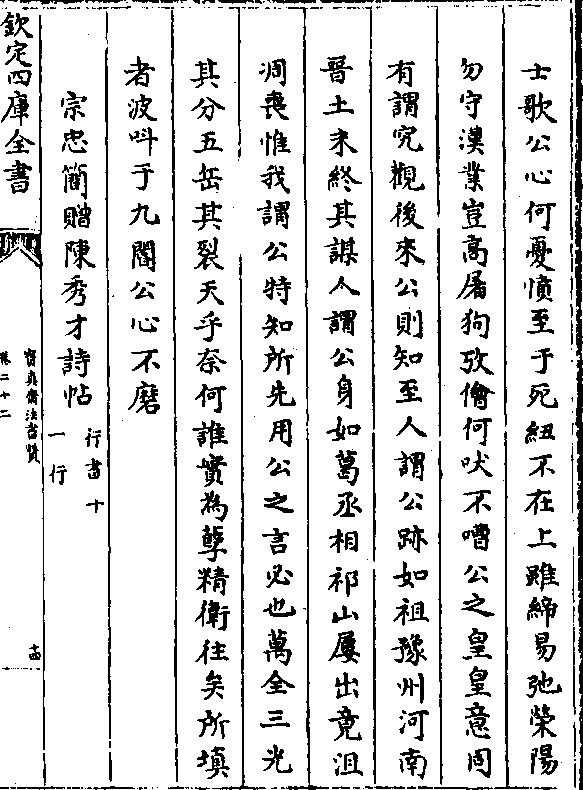 士歌公心何憂憤至于死紐不在上雖締易弛滎陽
勿守漢業豈高屠狗攷儈何吠不嘈公之皇皇意固
有謂究觀後來公則知至人謂公跡如祖豫州河南
晉土未終其謀人謂公身如葛丞相祁山屢出竟沮
凋喪惟我謂公特知所先用公之言必也萬全三光
其分五岳其裂天乎奈何誰實為孽精衛往矣所填
者波呌于九閽公心不磨
宗忠簡贈陳秀才詩帖
行書十
一行
欽定四庫全書
寳真齋法書贊
卷二十二
十四